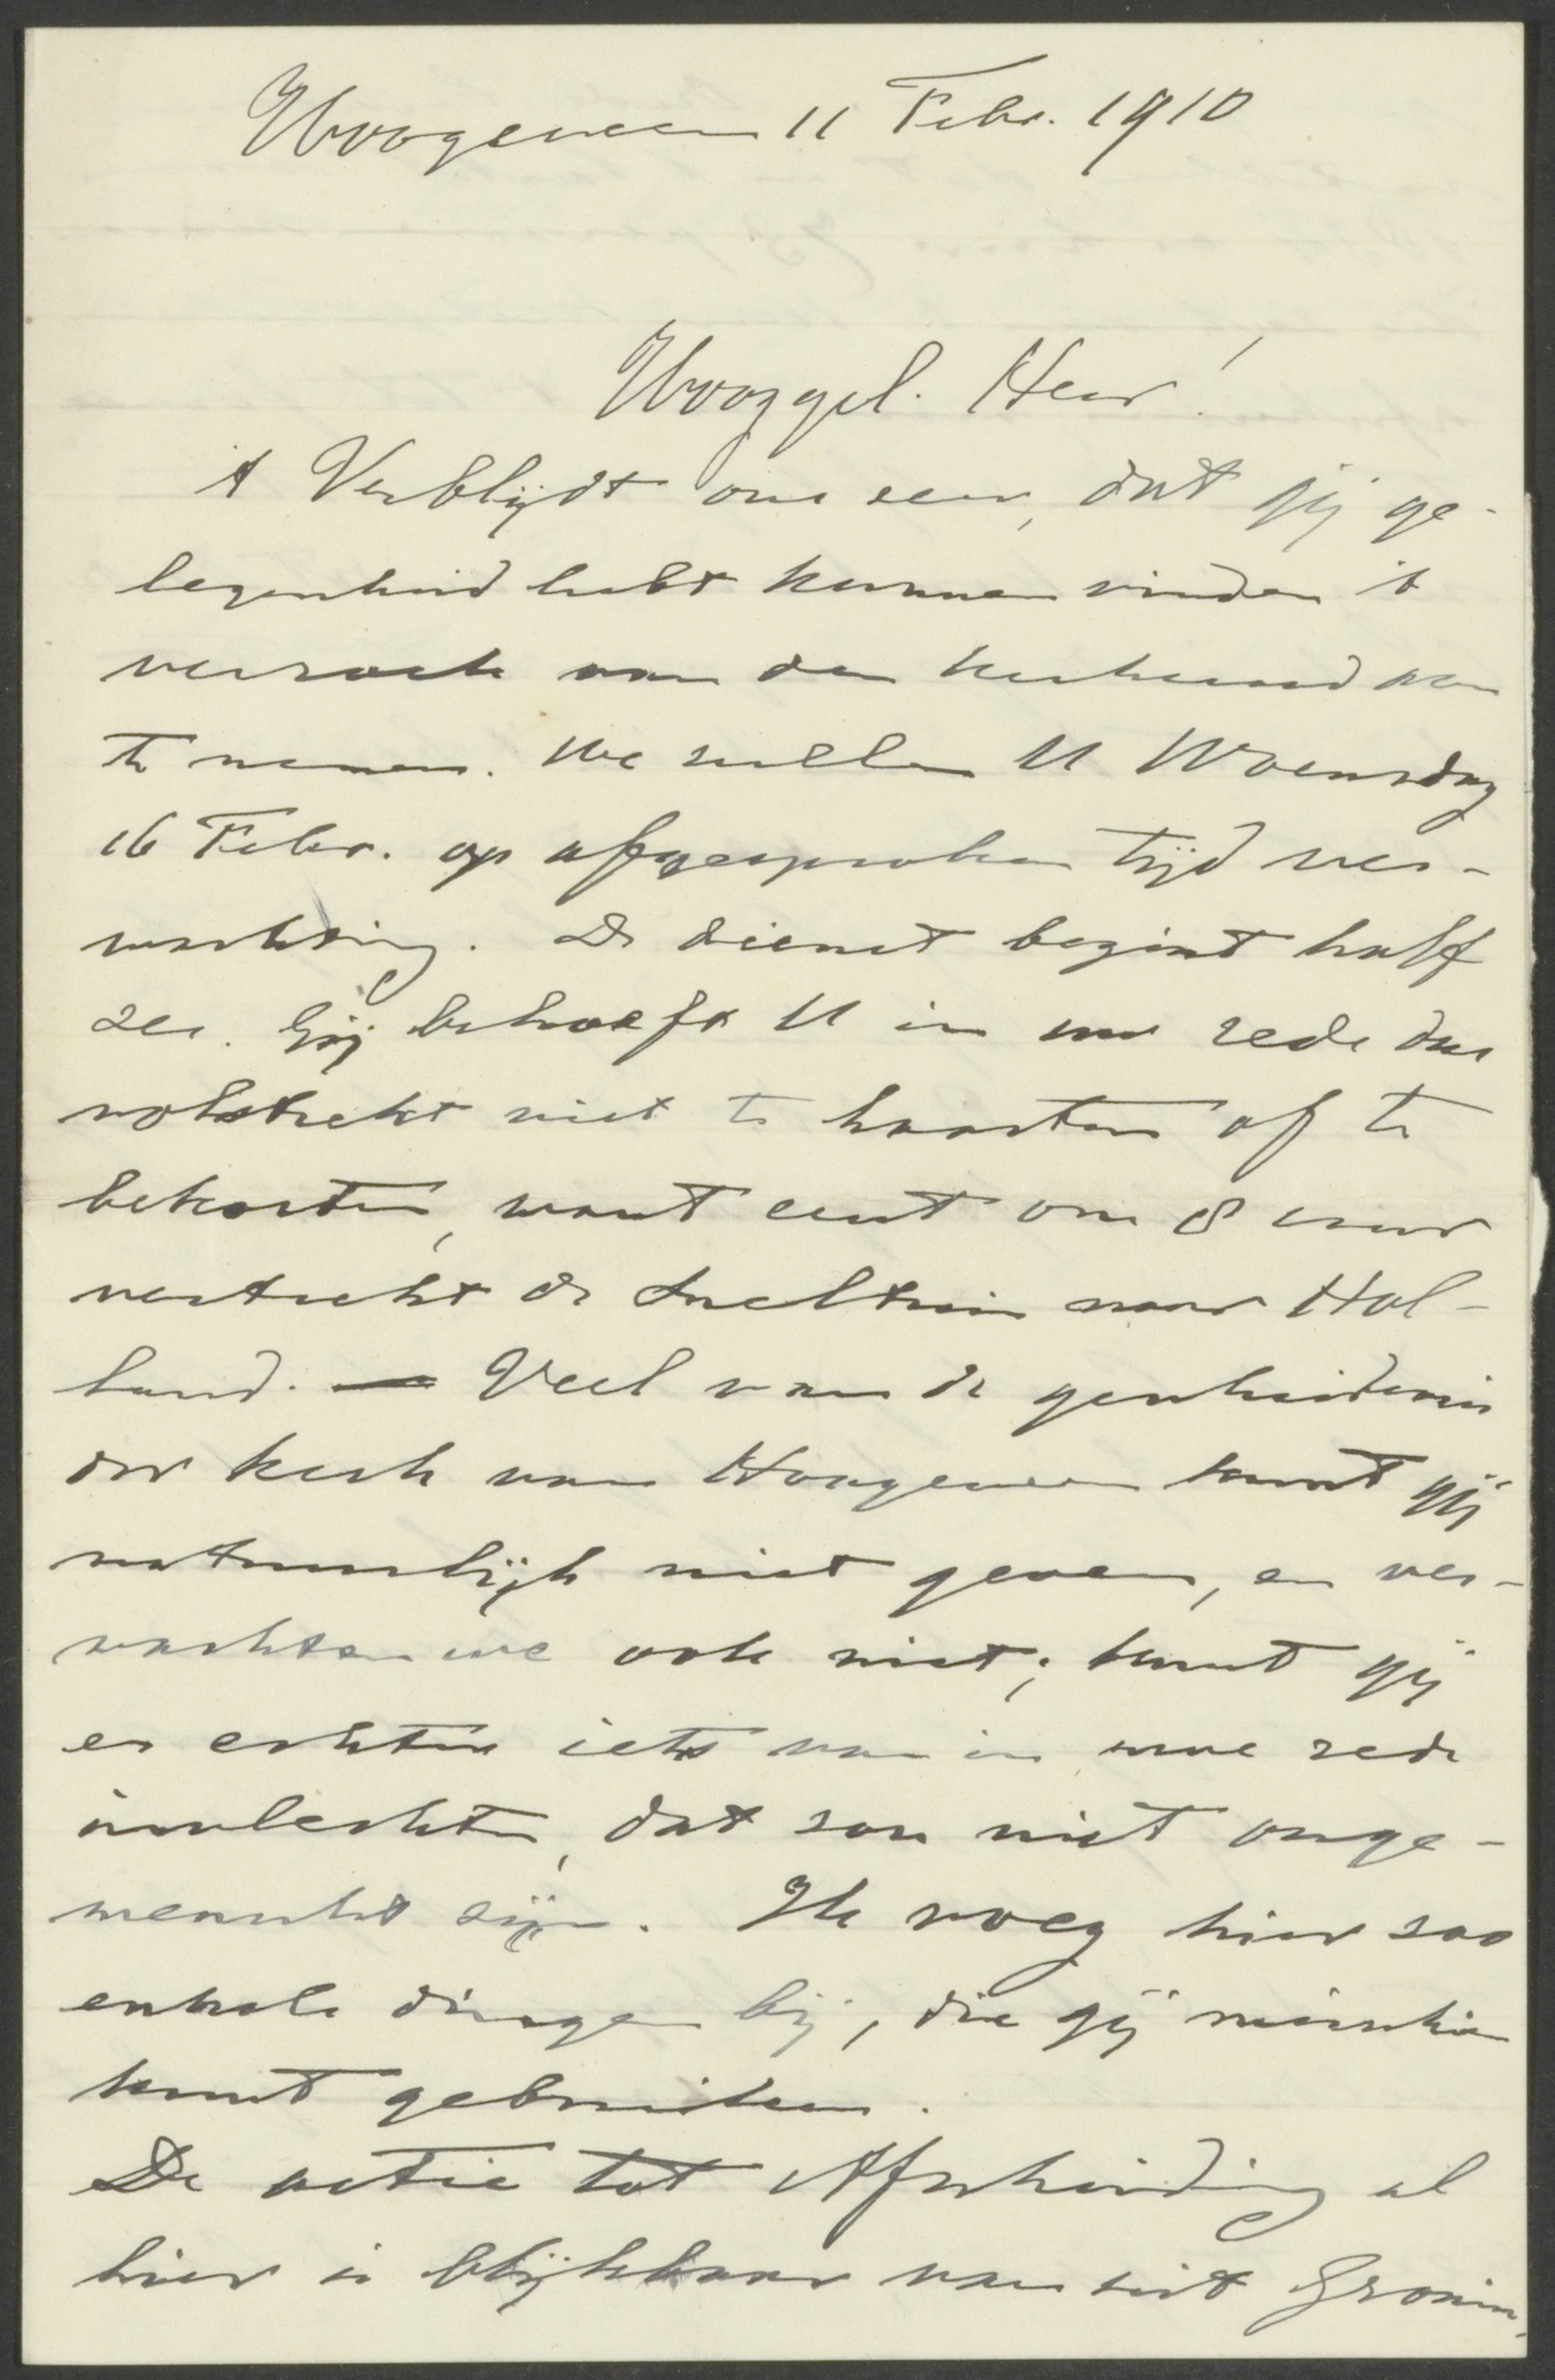 Hoogeveen 11 Febr. 1910
Hooggel. Heer!
't Verblijdt ons zeer, dat gij ge-
legenheid hebt kunnen vinden 't
verzoek van den kerkeraad aan
te nemen. We zullen U Woensdag
16 Febr. op afgesproken tijd ver-
wachting. De dienst begint half
zes. Gij behoeft U in uw rede dus
volstrekt niet te haasten of te
bekorten, want eerst om 8 uur
vertrekt de sneltrein naar Hol-
land. — Veel van de geschiedenis
der kerk van Hoogeveen kunt gij
natuurlijk niet geven, en ver-
wachten we ook niet; kunt gij
er echter iets van in uwe rede
invlechten, dat zou niet onge-
wenscht zijn. Ik voeg hier zoo
enkele dingen bij, die gij misschien
kunt gebruiken.
De actie tot Afscheiding al
hier is blijkbaar van uit Gronin-